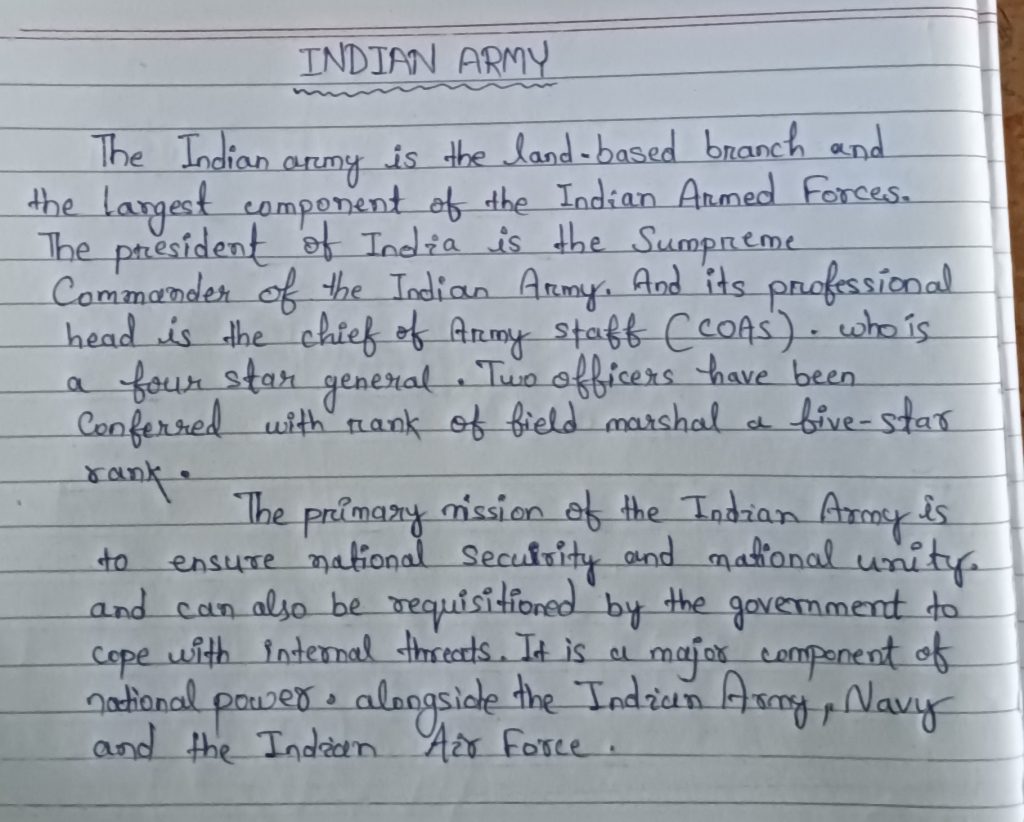 INDIAN ARMY
The Indian army is the land-based branch and
the largest component of the Indian Armed Forces.
The president of India is the Sumpreme
Commander of the Indian Army. And its professional
head is the chief of Army staff (COAS). who is
a four star general. Two officers have been
Conferred with rank of field marshal a five-star
rank.
The primary mission of the Indian Army is
to ensure national security and national unity.
and can also be requisitioned by the government to
cope with internal threats. It is a major component of
national power. alongside the Indian Army, Navy
and the Indian Air Force.